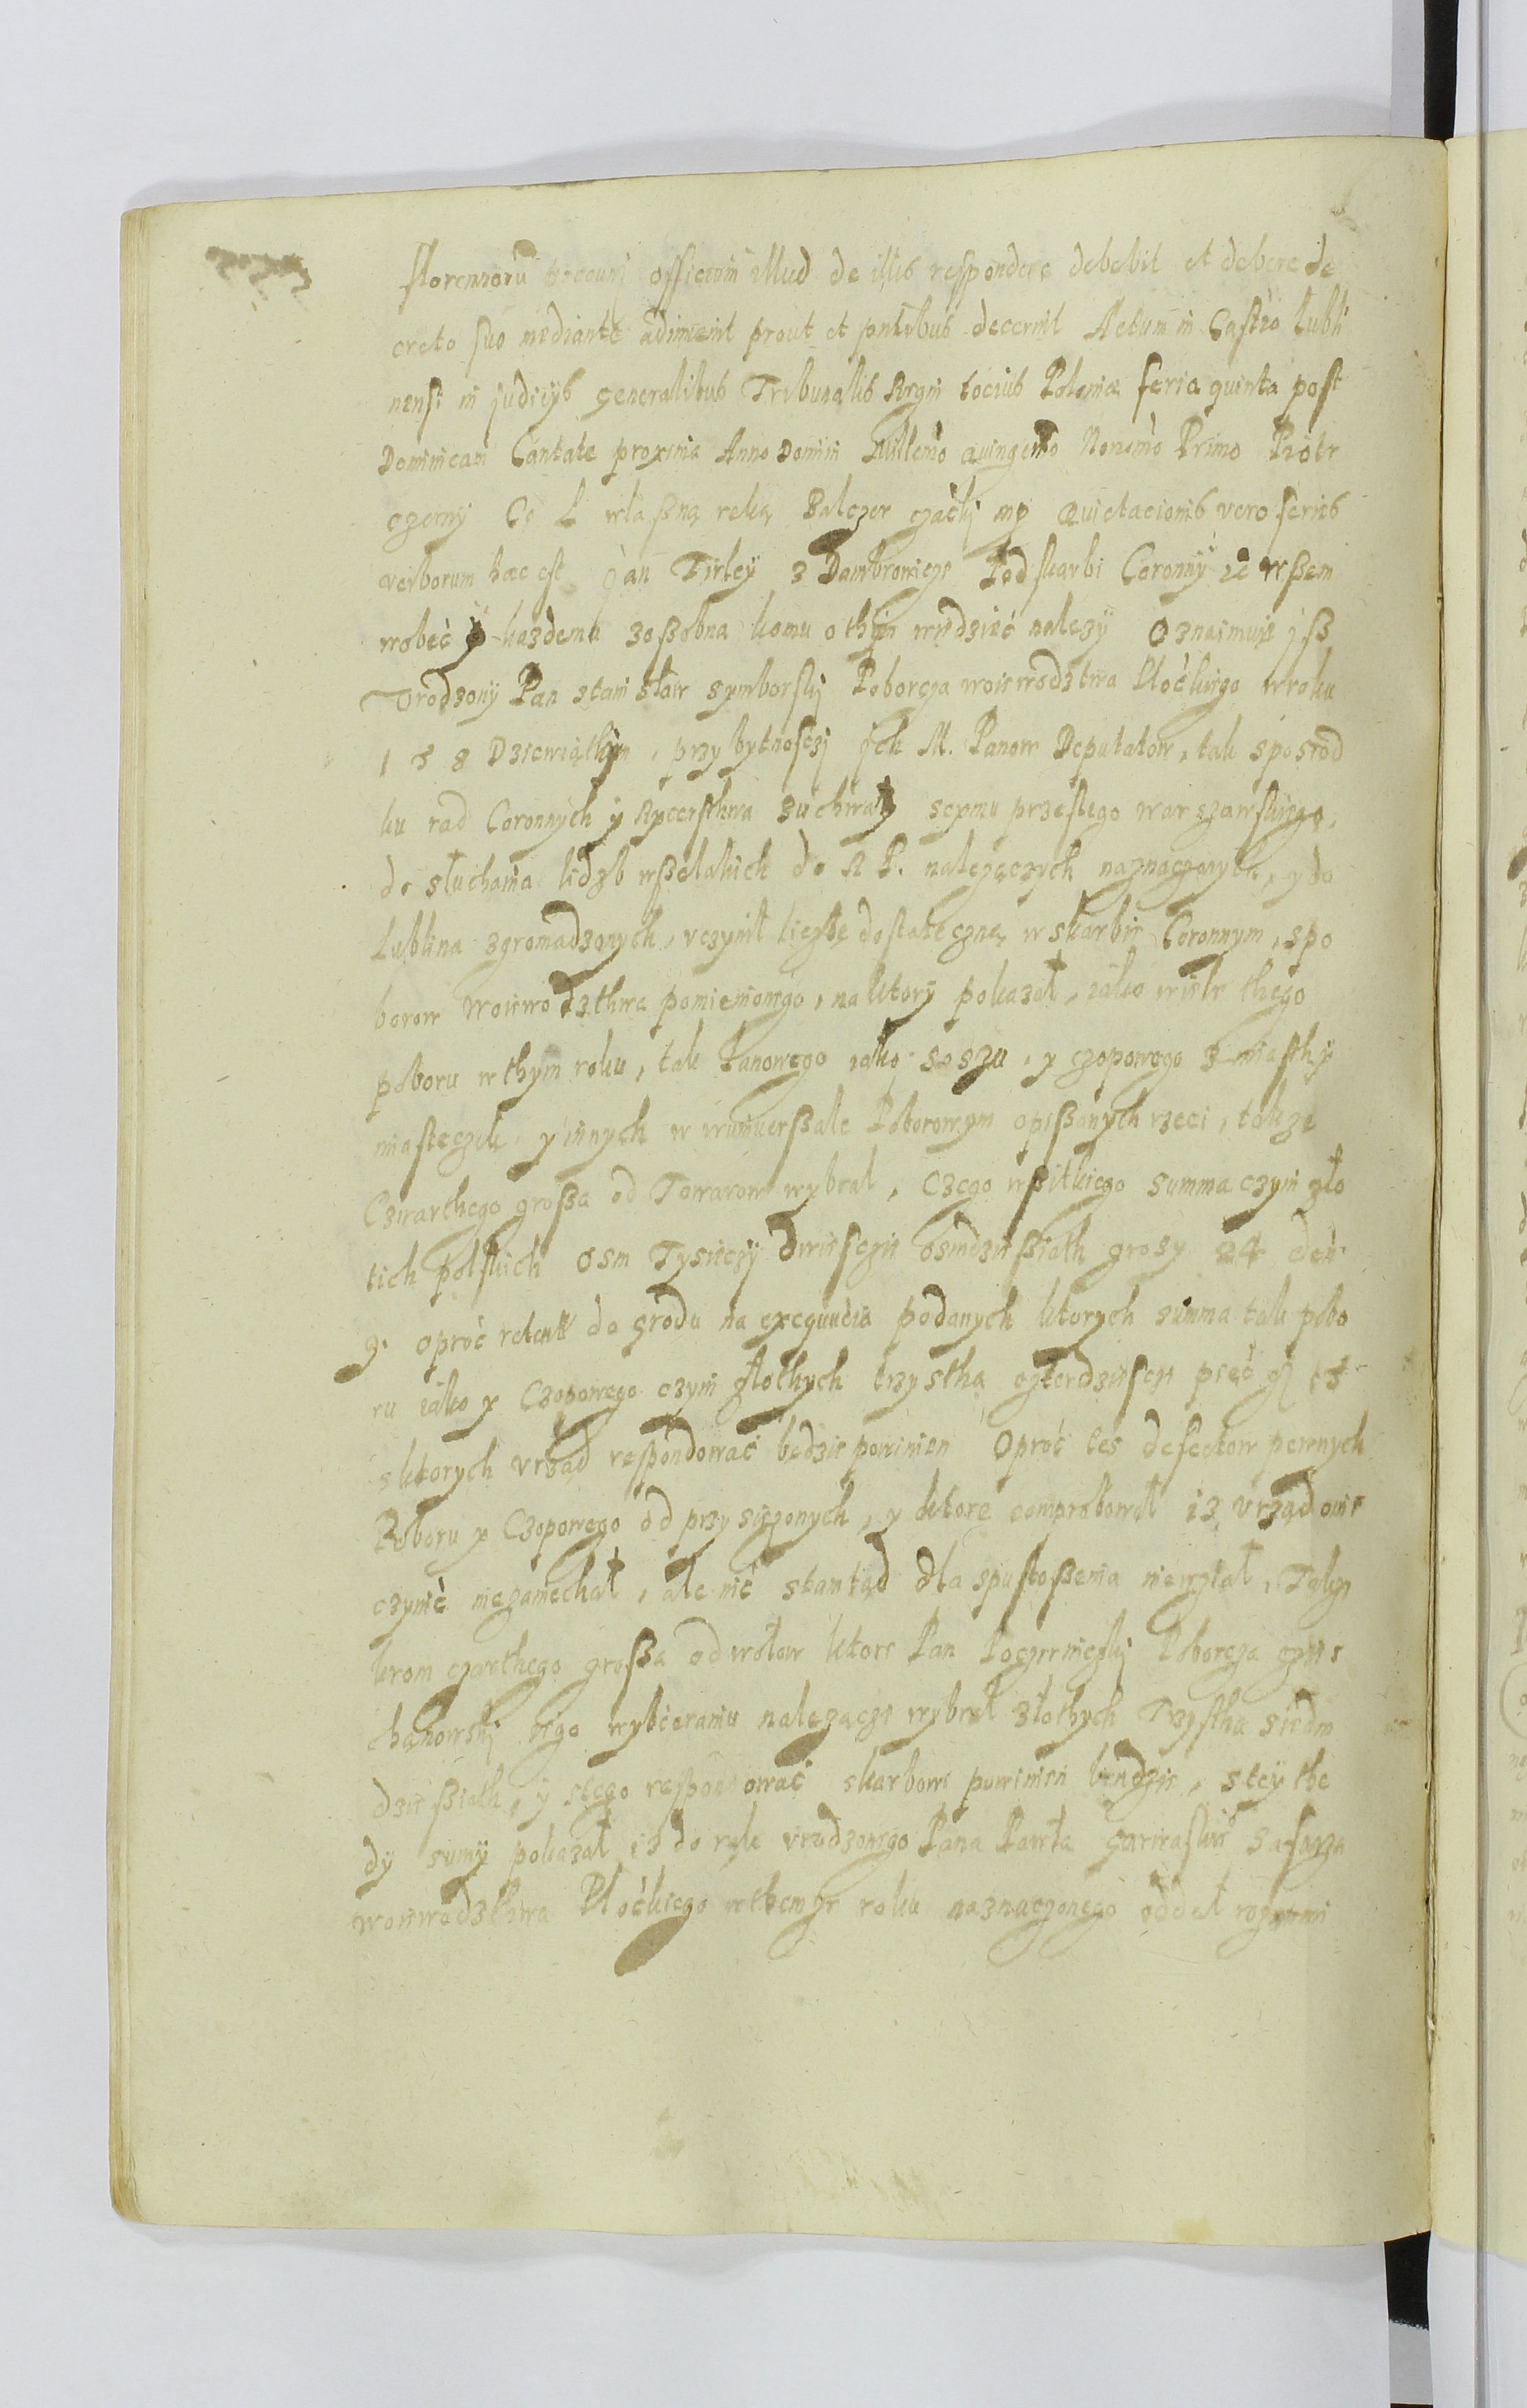 florenorū officium illud de illis respondere debebit et debere de
creto suo mediante adinvenit prout et pntibus decernit Actum in Castro Lubli
nensi in judicijs generalibus Tribunalis Regni tocius Poloniæ feria quinta post
Dominicam Cantate proxima Anno Domini Millemo quingemo Nonomo Primo Piotr
czerny własną ręką Balczer mp Quietacionis vero series
verborum hæc est Jan Firley z Dambrowicze Podskarbi Coronny wssem
wobec y każdemu zossobna komu o thym wiedzieć należy Oznaimuie jß
Vrodzony Pan stanisław symborskj Poborcza woiewodztwa Płockiego wroku
1 5 8 Dziewiąthym, przy bytnosczj jch M. Panow Deputatow, tak sposrod
ku rad Coronnych y Rycersthwa zuchwały seymu przeslego warszawskiego,
do słuchania lidzb wßelakich do R P. należączych naznaczonych, y do
Lublina zgromadzonych, vczynił liczbę dostateczną w skarbie Coronnym, spo
borow woiewodzthwa pomienionego, na ktory pokazał, iako wiele thego
poboru w thym roku, tak łanowego iako soszu, y czopowego z miasth y
miasteczek y innych w vniuerßale Poborowym opissanych rzeci, takze
Czwarthego großa od Towarow wybrał, Czego wßitkiego summa czyni zło
tich polskich osm Tysieczy dwiesczie osmdziessiath grosy 24 den
9. oproc retent do grodu na exequucia podanych ktorych summa tak pobo
ru iako y Czopowego czyni złothych trzystha czterdziesczi pięć
sktorych vrząd respondowac będzie powinien Oproc tes defectow pewnych
Poboru y Czopowego od przysiężonych, y ktore comprobował iz vrządownie
czynić niezaniechał, ale nic stamtąd dla spustoßenia niewziął, Takze
krom czarthego großa od wołow ktore Pan Poborcza
wybieraniu należącze wybrał złothych Trzystha siedm
dziessiath, y stego respondowac skarbowi powinien bendzie, stey the
dy sumy pokazał iz do rąk vrodzonego Pana Pawła safarza
woiewodzthwa Płockiego wthemze roku naznaczonego oddał